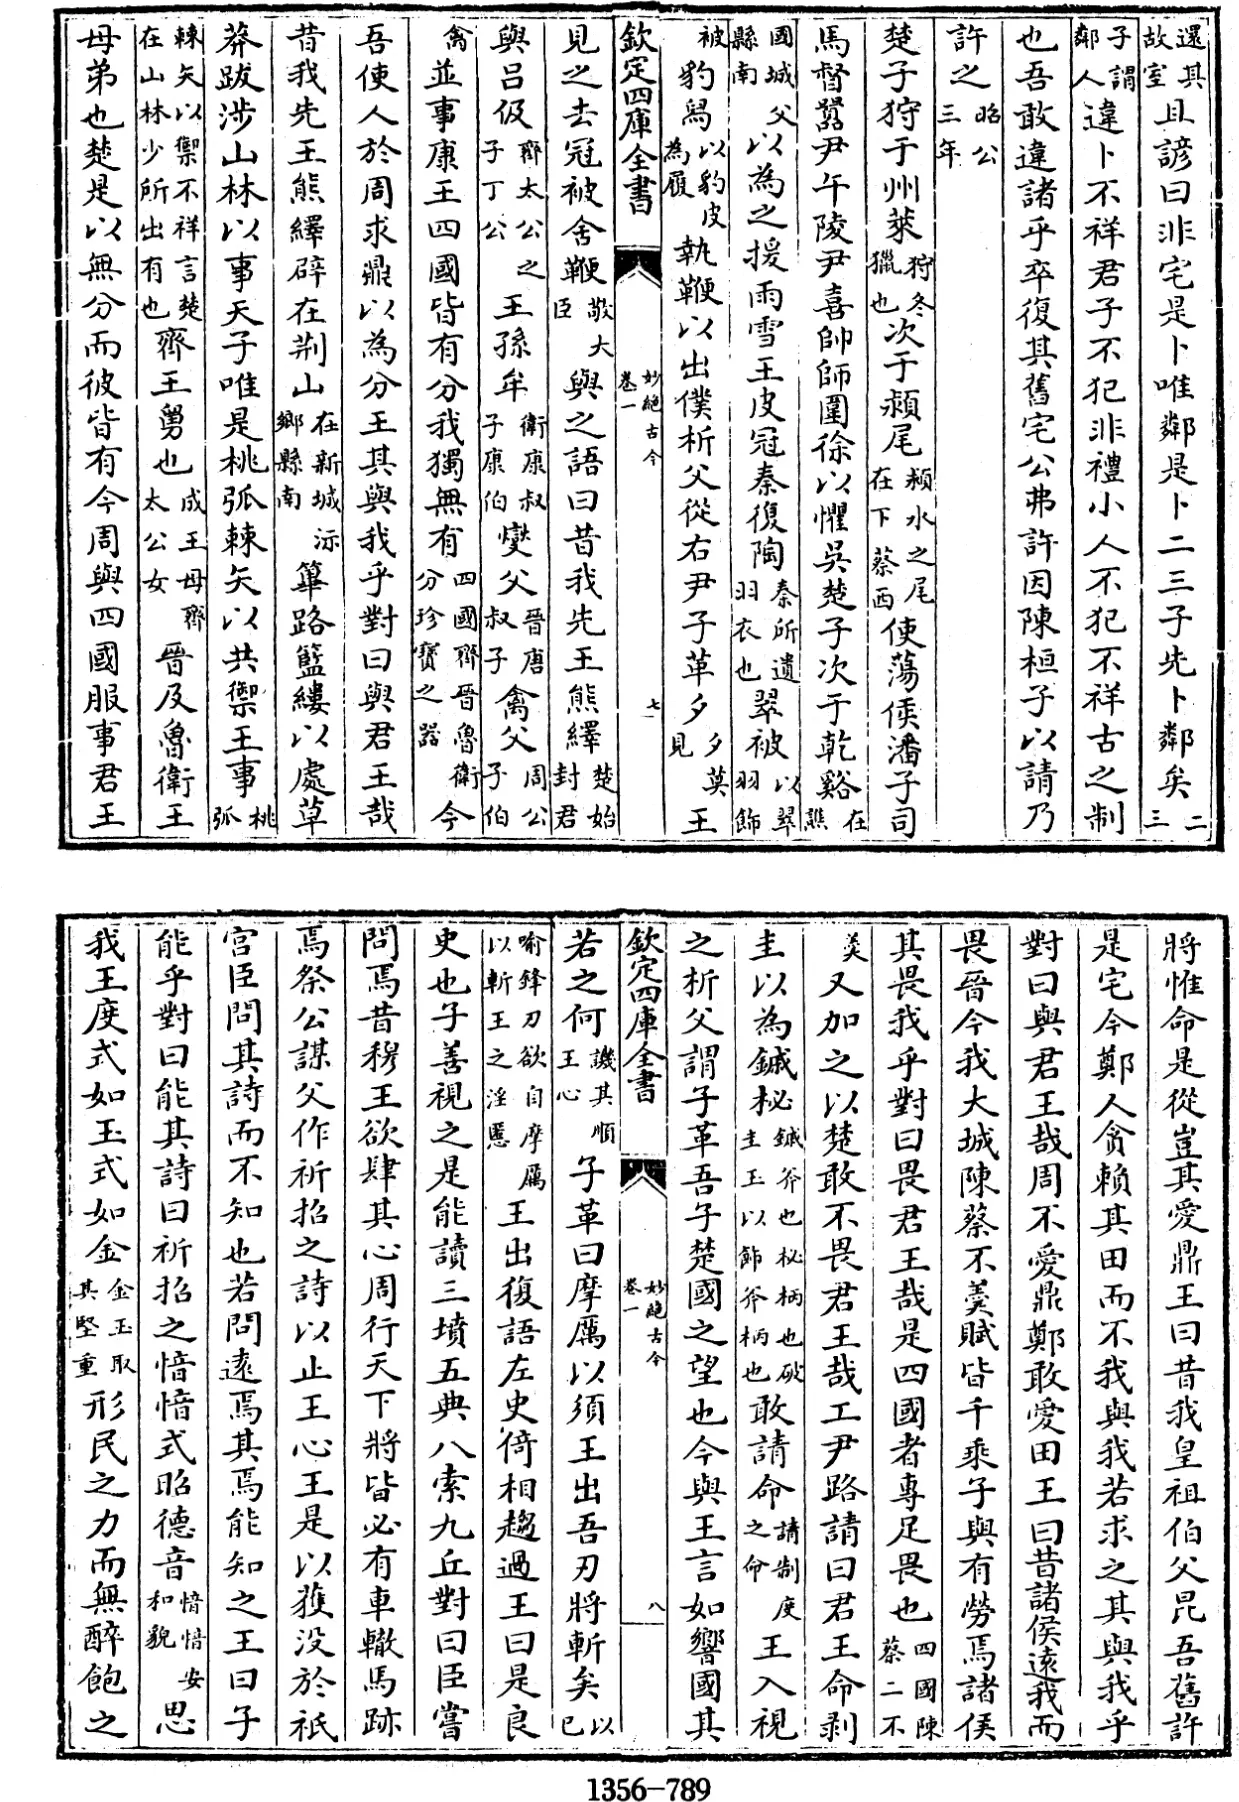 還其故室且諺曰非宅是卜唯鄰是卜二三子先卜鄰矣二三
子謂鄰人違卜不祥君子不犯非禮小人不犯不祥古之制
也吾敢違諸乎卒復其舊宅公弗許因陳桓子以請乃
許之昭公三年
楚子狩于州萊狩冬獵也次于潁尾潁水之尾在下蔡西使蕩侯潘子司
馬督嚻尹午陵尹喜帥師圍徐以懼吳楚子次于乾谿在譙
國城父縣南以為之援雨雪王皮冠秦復陶秦所遺羽衣也翠被以翠羽飾
被豹舄以豹皮為履執鞭以出僕析父從右尹子革夕夕莫見王
欽定四庫全書 妙絶古今卷一 七
見之去冠被舍鞭敬大臣與之語曰昔我先王熊繹楚始封君
與呂伋齊太公之子丁公王孫牟衛康叔子康伯燮父晉唐叔子禽父周公子伯
禽並事康王四國皆有分我獨無有四國齊晉魯衛分珍寶之器今
吾使人於周求鼎以為分王其與我乎對曰與君王哉
昔我先王熊繹辟在荆山在新城沶鄉縣南篳路籃縷以處草
莽跋涉山林以事天子唯是桃弧棘矢以共禦王事桃弧
棘矢以禦不祥言楚在山林少所出有也齊王舅也成王母齊太公女晉及魯衛王
母弟也楚是以無分而彼皆有今周與四國服事君王
將惟命是從豈其愛鼎王曰昔我皇祖伯父昆吾舊許
是宅今鄭人貪賴其田而不我與我若求之其與我乎
對曰與君王哉周不愛鼎鄭敢愛田王曰昔諸侯遠我而
畏晉今我大城陳蔡不羮賦皆千乘子與有勞焉諸侯
其畏我乎對曰畏君王哉是四國者專足畏也四國陳蔡二不
羮又加之以楚敢不畏君王哉工尹路請曰君王命剥
圭以為鏚柲鏚斧也柲柄也破圭玉以飾斧柄也敢請命請制度之命王入視
之析父謂子革吾子楚國之望也今與王言如響國其
欽定四庫全書 妙絶古今卷一 八
若之何譏其順王心子革曰摩厲以須王出吾刃將斬矣以已
喻鋒刃欲自摩厲以斬王之淫慝王出復語左史倚相趨過王曰是良
史也子善視之是能讀三墳五典八索九丘對曰臣嘗
問焉昔穆王欲肆其心周行天下將皆必有車轍馬跡
焉祭公謀父作祈招之詩以止王心王是以獲没於祇
宮臣問其詩而不知也若問遠焉其焉能知之王曰子
能乎對曰能其詩曰祈招之愔愔式昭德音愔愔安和貌思
我王度式如玉式如金金玉取其堅重形民之力而無醉飽之
1356-789